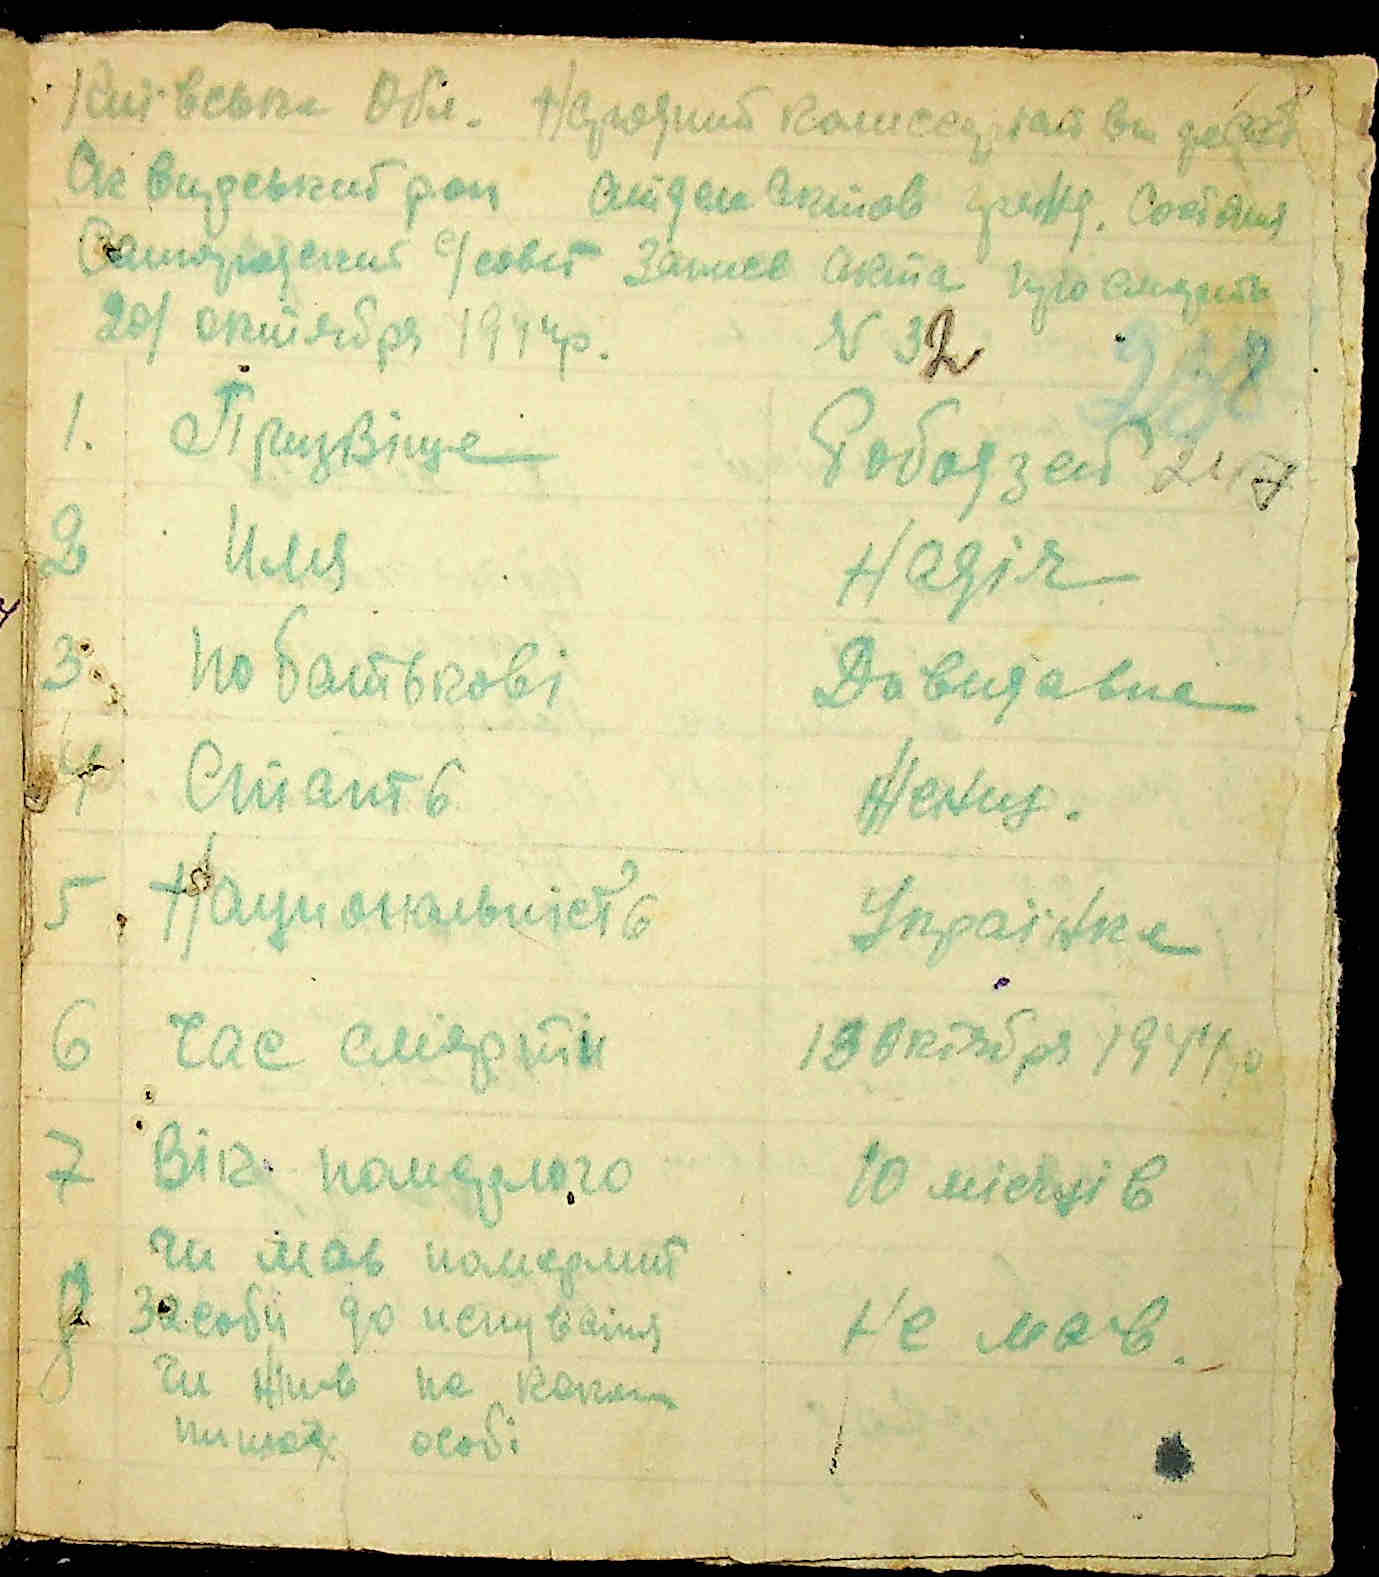 Київська Обл. Народний комиссариат вн дел
Сквирський рон отдел Актов гражд. Состояния
с/совет Запис Акта про смерть
20/ октября 1944р. N 32
288
1. Призвіще Рободзей 217
2 Имя Надія
3 по батькові Давидавна
4 Стать Женщ.
5 Национальність Українка
6 Час смерти 13 октября 1944р
7 Вік померлого 10 місяців
8 Чи мав померлий
засоби до иснування Не мав.
Чи жив на
особі